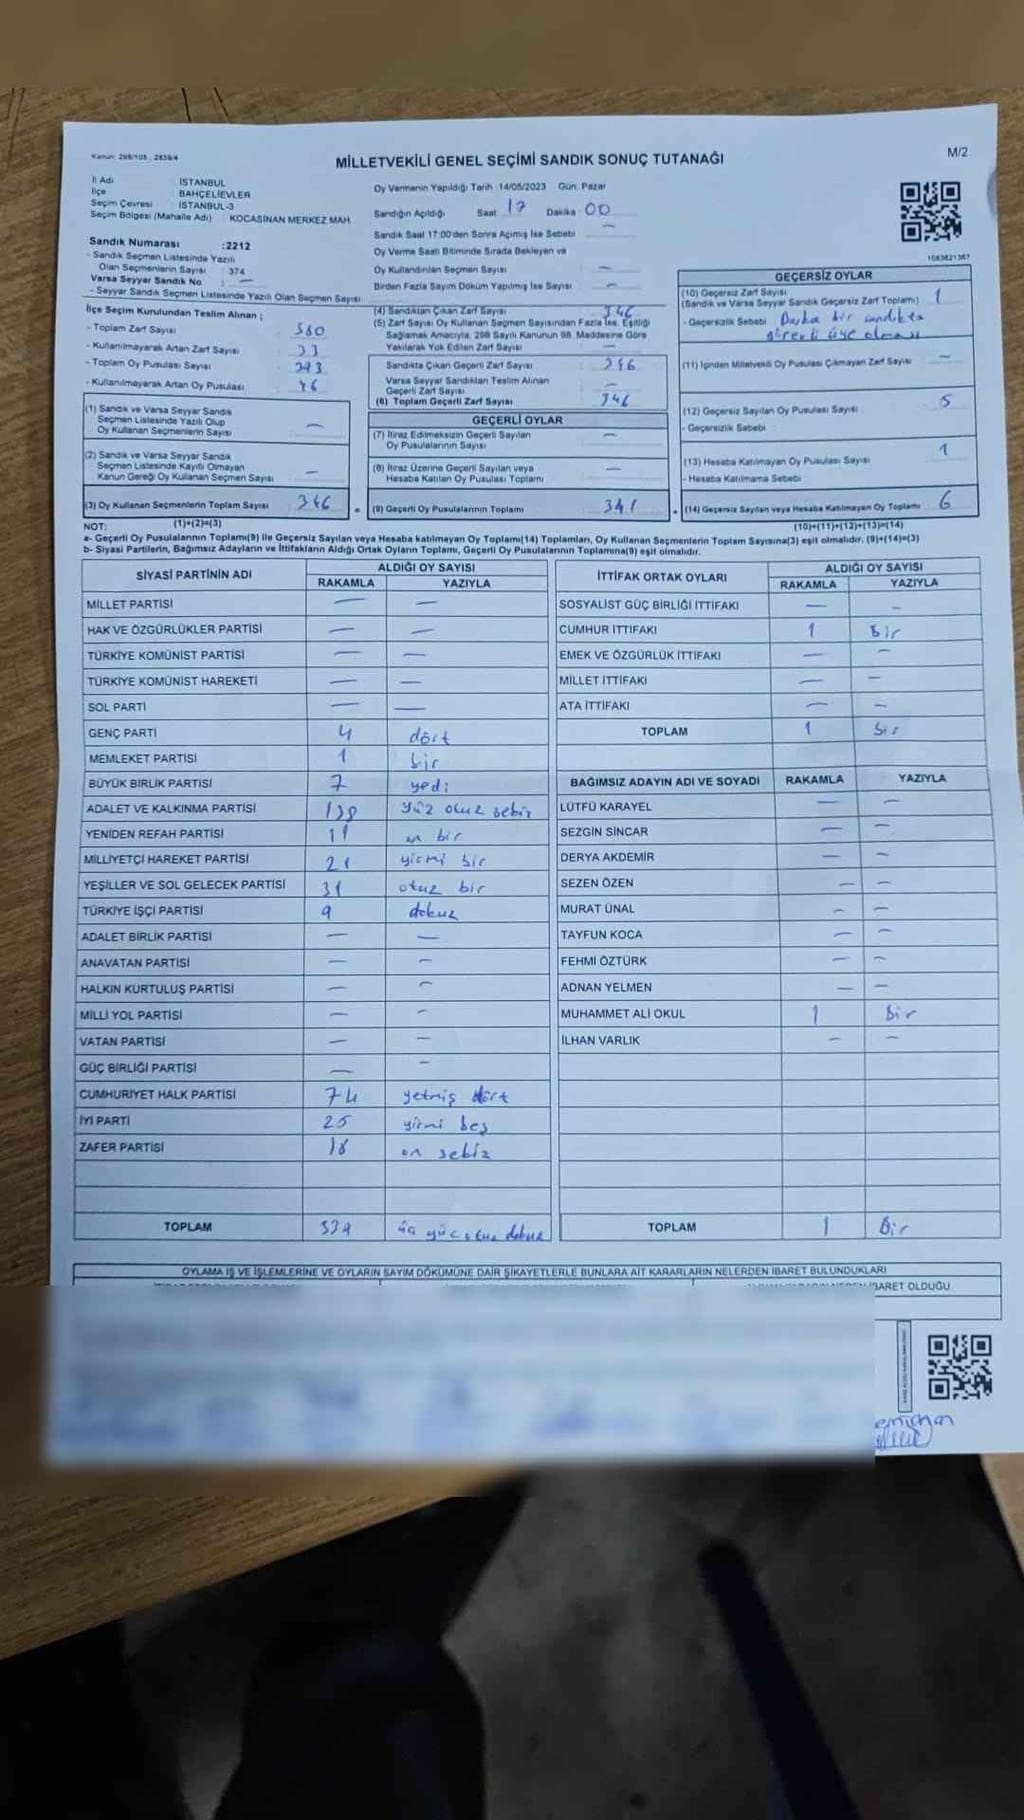 Kanun: 298/105 , 2839/4
MİLLETVEKİLİ GENEL SEÇİMİ SANDIK SONUÇ TUTANAĞI
M/2
İl Adı İSTANBUL
İlçe BAHÇELİEVLER
Seçim Çevresi İSTANBUL-3
Seçim Bölgesi (Mahalle Adı) KOCASİNAN MERKEZ MAH.
Oy Vermenin Yapıldığı Tarih 14/05/2023 Gün: Pazar
Sandığın Açıldığı Saat 17 Dakika 00
Sandık Saat 17:00'den Sonra Açılmış İse Sebebi —
Oy Verme Saati Bitiminde Sırada Bekleyen ve
Oy Kullandırılan Seçmen Sayısı —
Birden Fazla Sayım Döküm Yapılmış İse Sayısı —
1083621367
Sandık Numarası :2212
- Sandık Seçmen Listesinde Yazılı
Olan Seçmenlerin Sayısı : 374
Varsa Seyyar Sandık No : —
- Seyyar Sandık Seçmen Listesinde Yazılı Olan Seçmen Sayısı:
İlçe Seçim Kurulundan Teslim Alınan ;
- Toplam Zarf Sayısı 380
- Kullanılmayarak Artan Zarf Sayısı 33
- Toplam Oy Pusulası Sayısı 393
- Kullanılmayarak Artan Oy Pusulası 46
(1) Sandık ve Varsa Seyyar Sandık
Seçmen Listesinde Yazılı Olup
Oy Kullanan Seçmenlerin Sayısı —
(2) Sandık ve Varsa Seyyar Sandık
Seçmen Listesinde Kayıtlı Olmayan
Kanun Gereği Oy Kullanan Seçmen Sayısı —
(3) Oy Kullanan Seçmenlerin Toplam Sayısı 346
(1)+(2)=(3)
(4) Sandıktan Çıkan Zarf Sayısı 346
(5) Zarf Sayısı Oy Kullanan Seçmen Sayısından Fazla İse, Eşitliği
Sağlamak Amacıyla, 298 Sayılı Kanunun 98. Maddesine Göre
Yakılarak Yok Edilen Zarf Sayısı —
Sandıkta Çıkan Geçerli Zarf Sayısı 346
Varsa Seyyar Sandıktan Teslim Alınan
Geçerli Zarf Sayısı —
(6) Toplam Geçerli Zarf Sayısı 346
GEÇERLİ OYLAR
(7) İtiraz Edilmeksizin Geçerli Sayılan
Oy Pusulalarının Sayısı —
(8) İtiraz Üzerine Geçerli Sayılan veya
Hesaba Katılan Oy Pusulası Toplamı —
= (9) Geçerli Oy Pusulalarının Toplamı 341
GEÇERSİZ OYLAR
(10) Geçersiz Zarf Sayısı 1
(Sandık ve Varsa Seyyar Sandık Geçersiz Zarf Toplamı)
- Geçersizlik Sebebi Başka bir sandıkta
görevli üye olması
(11) İçinden Milletvekili Oy Pusulası Çıkmayan Zarf Sayısı —
(12) Geçersiz Sayılan Oy Pusulası Sayısı 5
- Geçersizlik Sebebi
(13) Hesaba Katılmayan Oy Pusulası Sayısı 1
- Hesaba Katılmama Sebebi
+ (14) Geçersiz Sayılan veya Hesaba Katılmayan Oy Toplamı 6
(10)+(11)+(12)+(13)=(14)
NOT:
a- Geçerli Oy Pusulalarının Toplamı(9) ile Geçersiz Sayılan veya Hesaba katılmayan Oy Toplamı(14) Toplamları, Oy Kullanan Seçmenlerin Toplam Sayısına(3) eşit olmalıdır. (9)+(14)=(3)
b- Siyasi Partilerin, Bağımsız Adayların ve İttifakların Aldığı Ortak Oyların Toplamı, Geçerli Oy Pusulalarının Toplamına(9) eşit olmalıdır.
SİYASİ PARTİNİN ADI ALDIĞI OY SAYISI
RAKAMLA YAZIYLA
MİLLET PARTİSİ — —
HAK VE ÖZGÜRLÜKLER PARTİSİ — —
TÜRKİYE KOMÜNİST PARTİSİ — —
TÜRKİYE KOMÜNİST HAREKETİ — —
SOL PARTİ — —
GENÇ PARTİ 4 dört
MEMLEKET PARTİSİ 1 bir
BÜYÜK BİRLİK PARTİSİ 7 yedi
ADALET VE KALKINMA PARTİSİ 138 yüz otuz sekiz
YENİDEN REFAH PARTİSİ 11 on bir
MİLLİYETÇİ HAREKET PARTİSİ 21 yirmi bir
YEŞİLLER VE SOL GELECEK PARTİSİ 31 otuz bir
TÜRKİYE İŞÇİ PARTİSİ 9 dokuz
ADALET BİRLİK PARTİSİ — —
ANAVATAN PARTİSİ — —
HALKIN KURTULUŞ PARTİSİ — —
MİLLİ YOL PARTİSİ — —
VATAN PARTİSİ — —
GÜÇ BİRLİĞİ PARTİSİ — —
CUMHURİYET HALK PARTİSİ 74 yetmiş dört
İYİ PARTİ 25 yirmi beş
ZAFER PARTİSİ 18 on sekiz
TOPLAM 339 üç yüz otuz dokuz
İTTİFAK ORTAK OYLARI ALDIĞI OY SAYISI
RAKAMLA YAZIYLA
SOSYALİST GÜÇ BİRLİĞİ İTTİFAKI — —
CUMHUR İTTİFAKI 1 Bir
EMEK VE ÖZGÜRLÜK İTTİFAKI — —
MİLLET İTTİFAKI — —
ATA İTTİFAKI — —
TOPLAM 1 bir
BAĞIMSIZ ADAYIN ADI VE SOYADI RAKAMLA YAZIYLA
LÜTFÜ KARAYEL — —
SEZGİN SİNCAR — —
DERYA AKDEMİR — —
SEZEN ÖZEN — —
MURAT ÜNAL — —
TAYFUN KOCA — —
FEHMİ ÖZTÜRK — —
ADNAN YELMEN — —
MUHAMMET ALİ OKUL 1 Bir
İLHAN VARLIK — —
TOPLAM 1 Bir
OYLAMA İŞ VE İŞLEMLERİNE VE OYLARIN SAYIM DÖKÜMÜNE DAİR ŞİKAYETLERLE BUNLARA AİT KARARLARIN NELERDEN İBARET BULUNDUKLARI
İBARET OLDUĞU